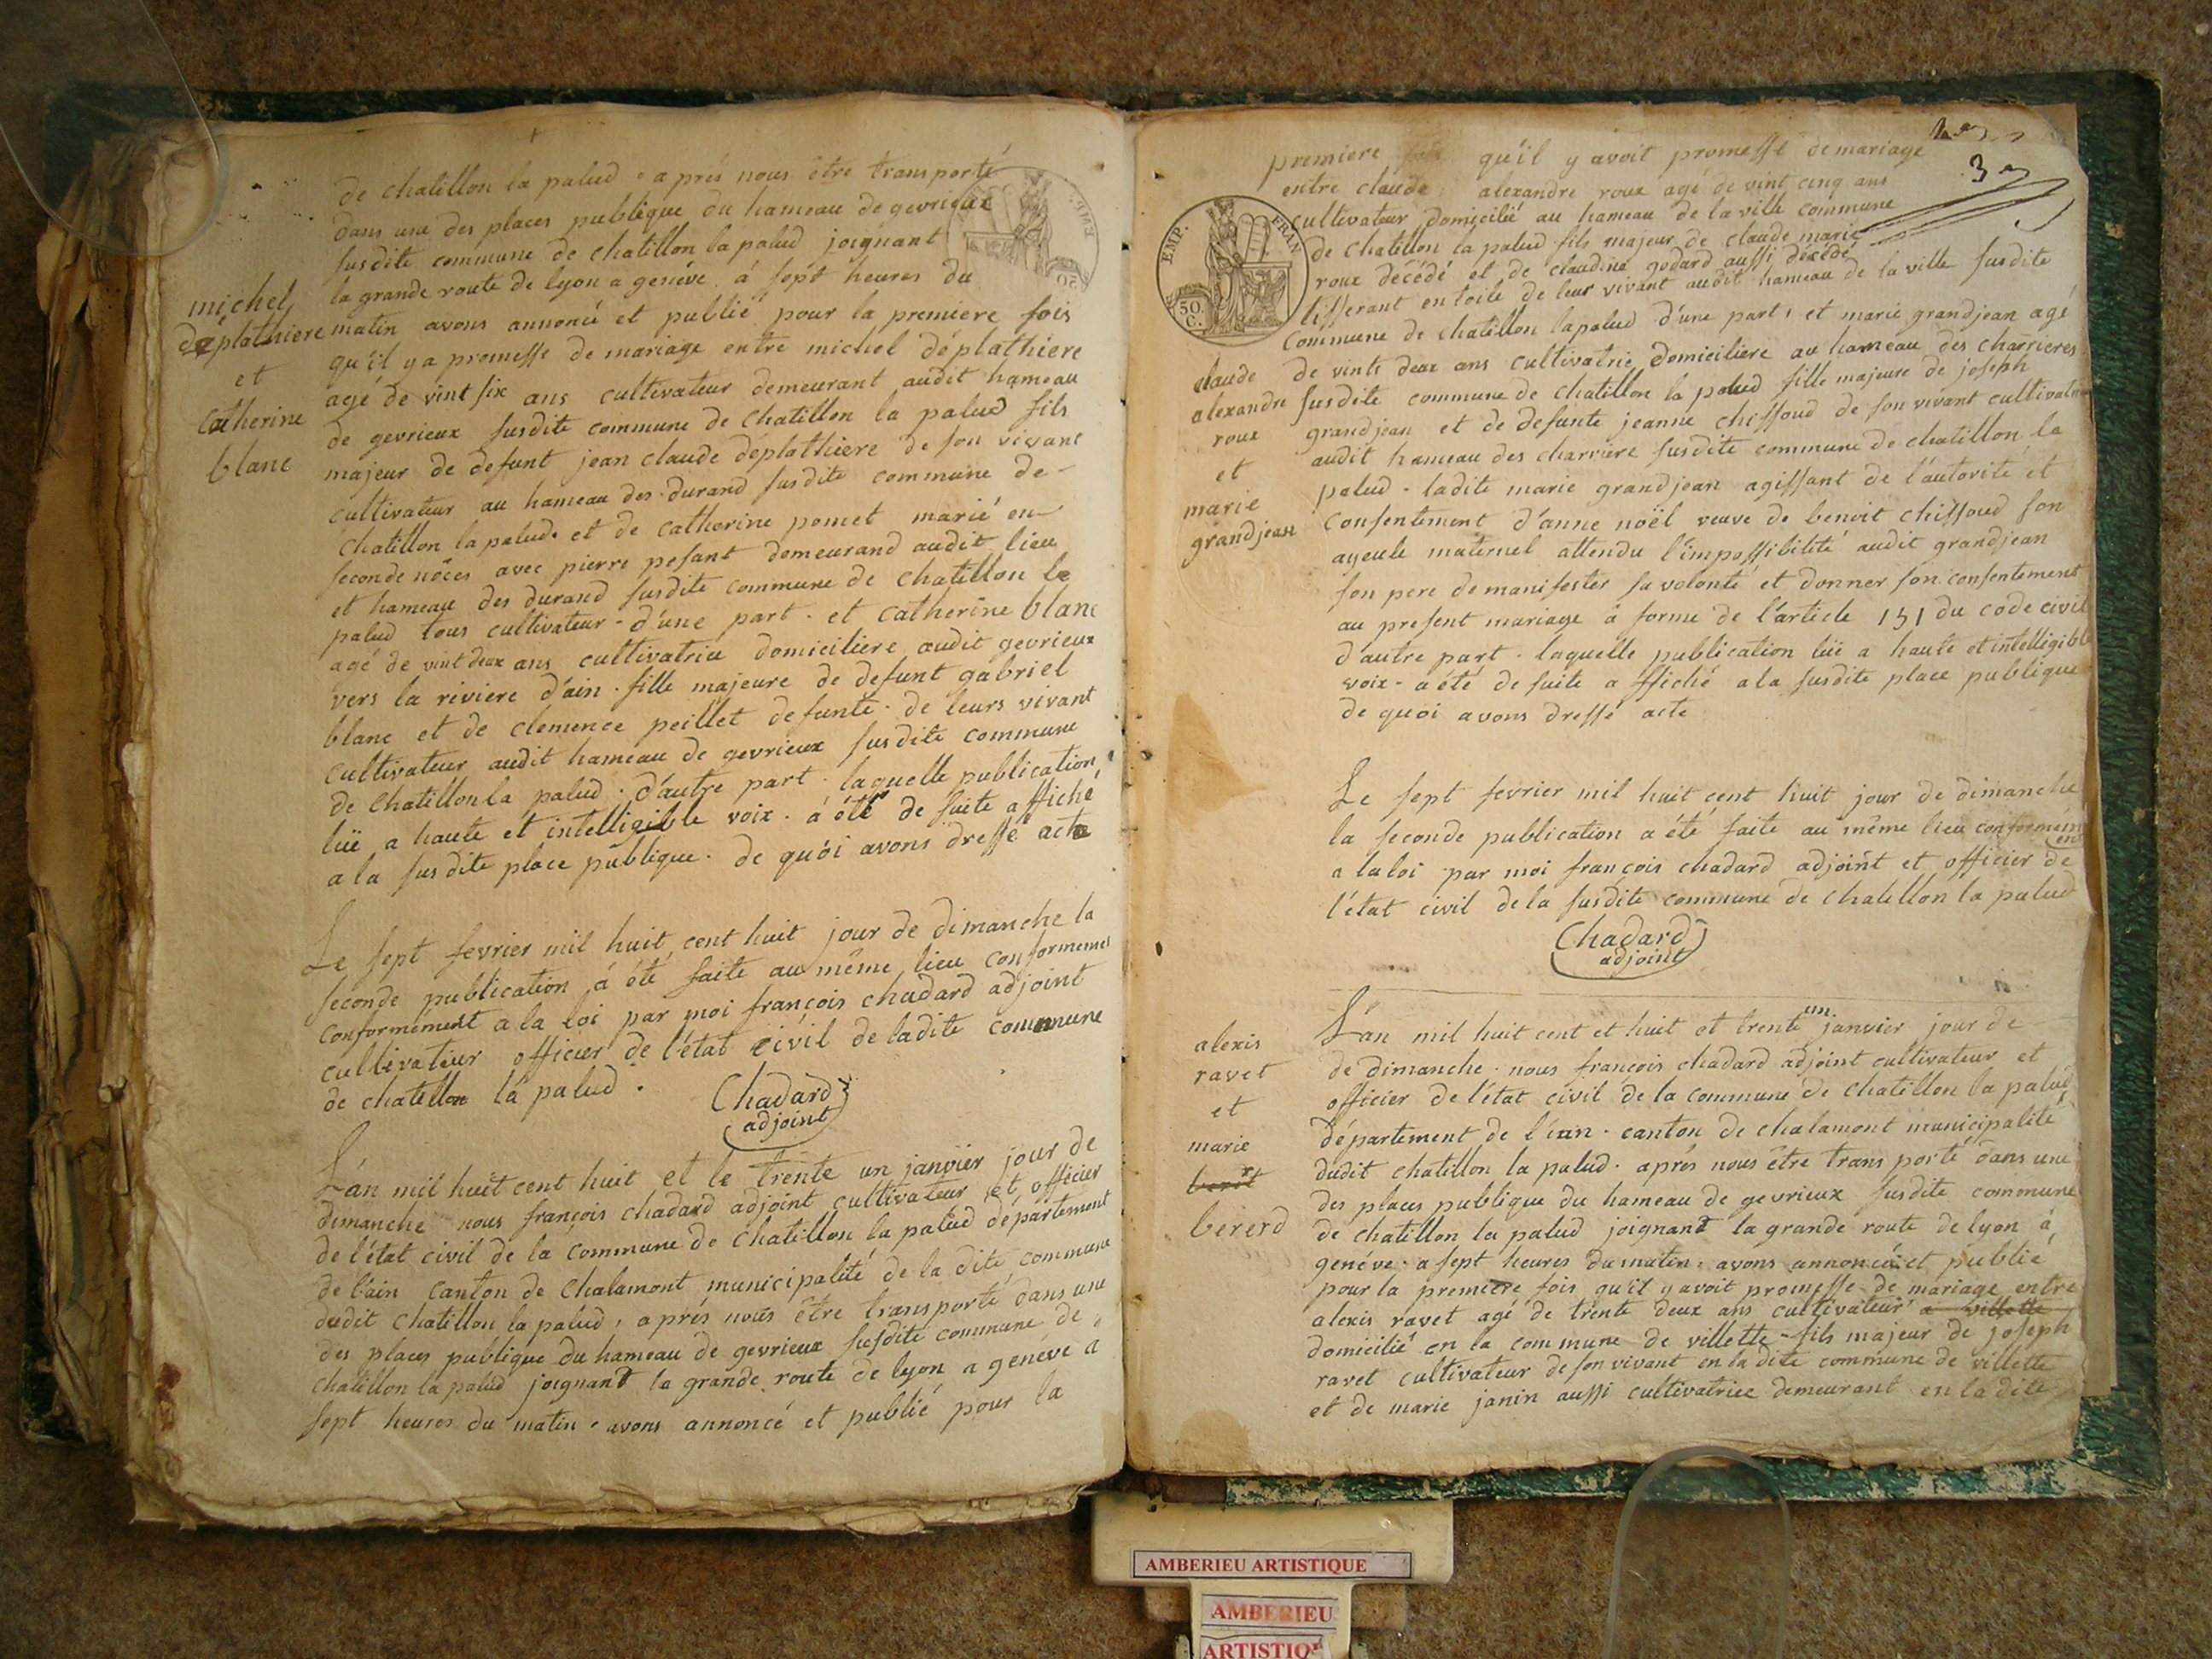 de chatillon la palud. après nous être transporté
dans une des places publique du hameau de gevrieux
susdite commune de chatillon la palud joignant
la grande route de lyon a genéve. á sept heures du
michel
déplathiere
et
catherine
blanc
matin avons annoncé et publié pour la premiere fois
qu'il y a promesse de mariage entre michel déplathiere
agé de vint six ans cultivateur demeurant audit hameau
de gevrieux susdite commune de chatillon la palud fils
majeur de defunt jean claude déplathiere de son vivant
cultivateur au hameau des durand susdite commune de
chatillon la palud. et de catherine pomet marié en
seconde nôces avec pierre pesant demeurand audit lieu
et hameau des durand susdite commune de chatillon la
palud tous cultivateur - d'une part. et catherine blanc
agé de vint deux ans cultivatrice domiciliere audit gevrieux
vers la riviere d'ain. fille majeure de defunt gabriel
blanc et de clemence peillet defunte. de leurs vivant
cultivateur audit hameau de gevrieux susdite commune
de chatillon la palud. d'autre part. laquelle publication
lüe a haute et intelligible voix. á été de suite affiché
a la susdite place publique. de quói avons dressé acte
Le sept fevrier mil huit cent huit jour de dimanche la
seconde publication á été faite au même lieu conformement
conformément a la loi par moi françois chadard adjoint
cultivateur officier de l'état civil de ladite commune
de chatillon la palud.
Chadard
adjoint
L'an mil huit cent huit et le trente un janvier jour de
dimanche nous françois chadard adjoint cultivateur et officier
de l'état civil de la commune de chatillon la palud département
de l'ain canton de chalamont municipalité de la dite commune
dudit chatillon la palud, aprés nous être transporté dans une
des places publique du hameau de gevrieux susdite commune de
chatillon la palud joignant la grande route de lyon a genéve a
sept heures du matin. avons annoncé et publié pour la
3
premiere fois qu'il y avoit promesse de mariage
entre claude alexandre roux agé de vint cinq ans
cultivateur domicilié au hameau de la ville commune
de chatillon la palud fils majeur de claude marie
roux décédé et de claudine godard aussi décédé
tisserant en toile de leur vivant audit hameau de la ville susdite
commune de chatillon la palud d'une part, et marie grandjean agé
EMP. FRAN
50
C.
claude
alexandre
roux
et
marie
grandjean
de vinte deux ans cultivatrie domiciliere au hameau des charrieres
susdite commune de chatillon la palud fille majeure de joseph
grandjean et de defunte jeanne chiffoud de son vivant cultivatrice
audit hameau des charriere susdite commune de chatillon la
palud - ladite marie grandjean agissant de l'autorité et
consentement d'anne noël veuve de benoit chiffoud son
ayeule maternel attendu l'impossibilité audit grandjean
son pere de manifester sa volonté et donner son consentement
au present mariage á forme de l'article 151 du code civil
d'autre part. laquelle publication lüe a haute et intelligible
voix - a été de suite affiché a la susdite place publique
de quoi avons dressé acte
Le sept fevrier mil huit cent huit jour de dimanche
la seconde publication a été faite au même lieu conformément
a la loi par moi françois chadard adjoint et officier de
l'état civil de la susdite commune de chatillon la palud
Chadard
adjoint
alexis
ravet
et
marie
bererd
L'an mil huit cent et huit et trente un janvier jour de
de dimanche. nous françois chadard adjoint cultivateur et
officier de l'état civil de la commune de chatillon la palud
département de l'ain. canton de chalamont municipalité
dudit chatillon la palud. aprés nous être transporté dans une
des places publique du hameau de gevrieux susdite commune
de chatillon la palud joignant la grande route de lyon á
genéve. a sept heures du matin. avons annoncé et publié
pour la premiere fois qu'il y avoit promesse de mariage entre
alexis ravet agé de trente deux ans cultivateur a villette
domicilié en la commune de villette - fils majeur de joseph
ravet cultivateur de son vivant en la dite commune de villette
et de marie janin aussi cultivatrice demeurant en la dite
AMBERIEU ARTISTIQUE
AMBERIEU
ARTISTIQU